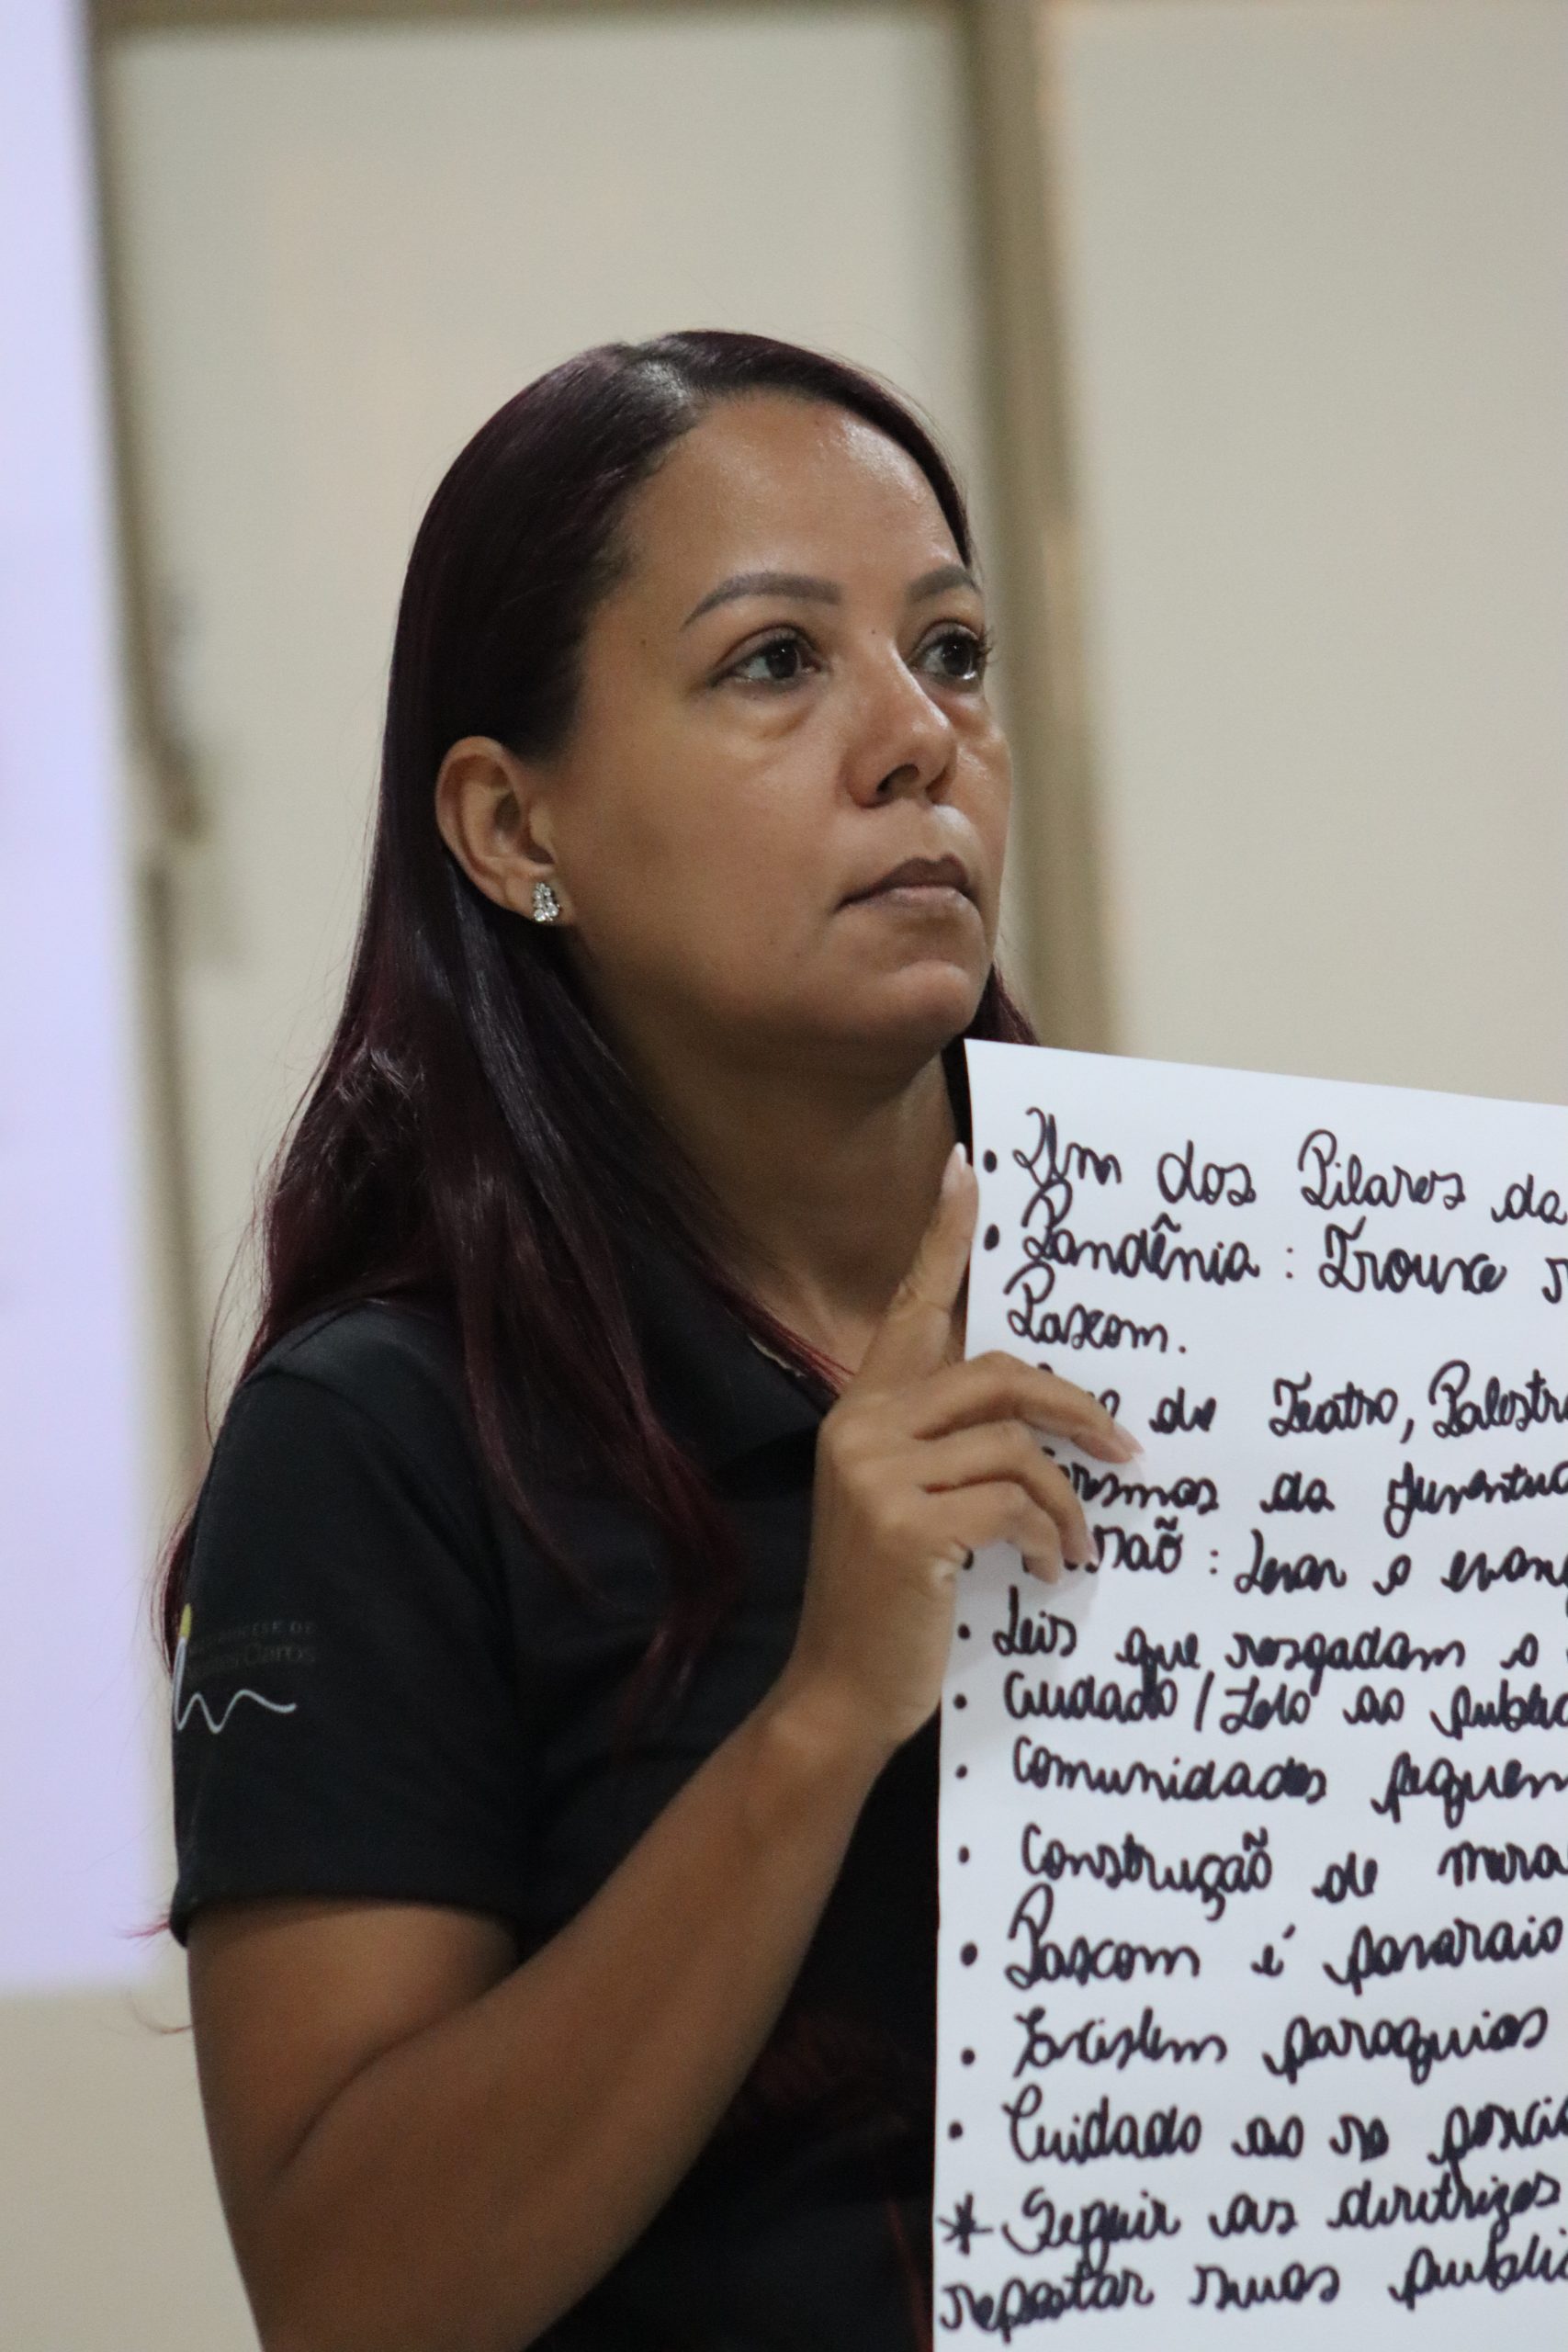 DIOCESE DE
Claros
• Um dos Pilares da
• Pandênia : Trouxe
Pascom.
de Teatro, Palestra
da Juventu
: Levar o evang
• Leis que resgadam o
• Cuidado / Zelo ao public
• Comunidades pequen
• Construção de mura
• Pascom é pararaio
• Existem paroquias
• Cuidado ao se posici
* Seguir as diretrizes
repostar suas publi